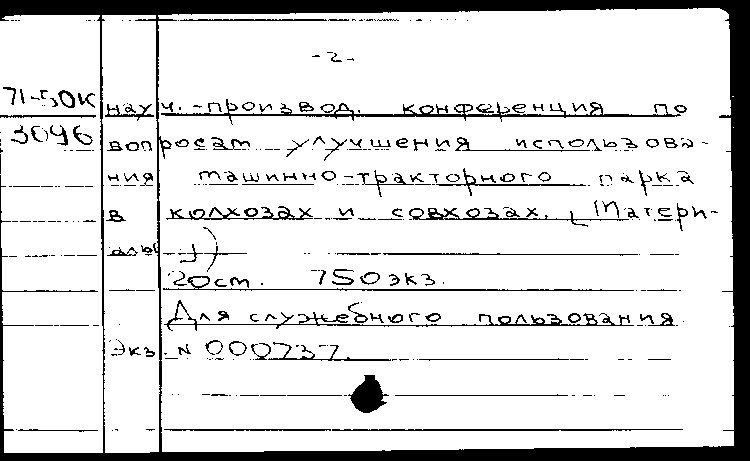 -2-
71-50К науч.-производ. конференция по
3046 вопросам улучшения использова-
ния машинно-тракторного парка
в колхозах и совхозах. [Матери-
алы])
20 ст. 750 экз.
Для служебного пользования
Экз. N 000737.